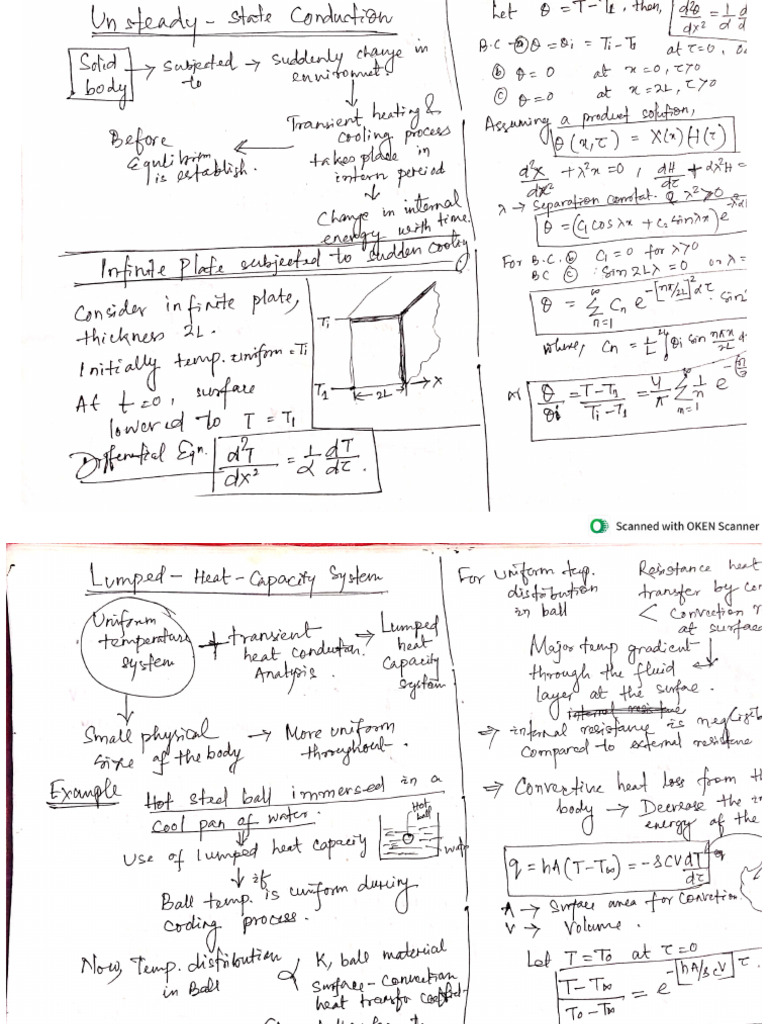 Unsteady - State Conduction
Solid body → subjected to → suddenly change in environmet.
↓
Transient heating & cooling process takes place in interm peroied
←
Before Equilibrim is establish.
↓
Change in internal energy with time.
Infinite Plate subjected to sudden cooling
Consider infinite plate,
thickness 2L.
Initially temp. uniform = Ti
At t=0, surface
lowered to T = T1
Differential Eqn. d²T/dx² = 1/α dT/dτ.
Ti
T1
2L
X
Let θ = T-T1, then, d²θ/dx² = 1/α d
B.C - (a) θ = θi = Ti-T1 at τ=0,
(b) θ = 0 at x=0, τ>0
(c) θ=0 at x=2L, τ>0
Assuming a product solution,
θ(x,τ) = X(x)H(τ)
d²X/dx² + λ²x=0, dH/dτ + αλ²H =
λ → Separation constat. λ²>0
θ = (C1 cos λx + C2 sin λx) e
For B.C. (b) C1 = 0 for λ>0
BC (c) : Sin 2Lλ = 0 or λ =
θ = Σ n=1 ∞ Cn e -[nπ/2L]²ατ sin
where, Cn = 1/L ∫ θi sin nπx/2L
or θ/θi = T-T1/Ti-T1 = 4/π Σ n=1 ∞ 1/n e
Scanned with OKEN Scanner
Lumped - Heat - Capacity System
Uniform temperature system + transient heat conductan. Analysis. → Lumped heat capacity system
↓
Small physical size of the body → More uniform throughout.
Example Hot steel ball immersed in a
cool pan of water.
Hot ball
Use of lumped heat capacity
↓ if
Ball temp. is uniform during
cooling process.
Now, Temp. distribution in Ball α K, ball material
Surface - Convection
heat transfr coeffid-
For uniform temp. distribution in ball
Resistance heat
transfer by con
< Convection r
at surface
Major temp gradient
through the fluid
layer at the surfae.
⇒ internal resistance is neglisib
compared to external resistene
⇒ Convective heat loss from th
body → Decrease the in
energy of the
q = hA(T-T∞) = -ρCV dT/dτ
A → Surface area for convetion
V → Volume.
Let T = T0 at τ=0
T-T∞/T0-T∞ = e -[hA/ρcV]τ.